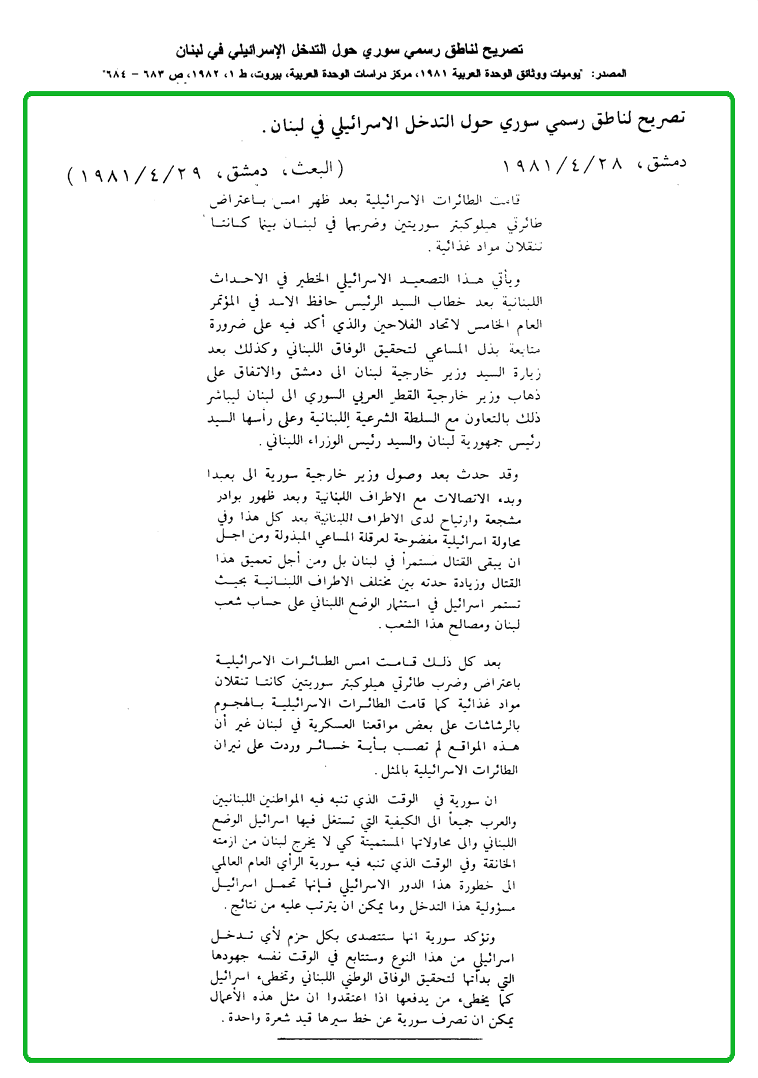 تصريح لناطق رسمي سوري حول التدخل الإسرائيلي في لبنان
المصدر: "يوميات ووثائق الوحدة العربية ١٩٨١، مركز دراسات الوحدة العربية، بيروت، ط ١، ١٩٨٢، ص ٦٨٣ - ٦٨٤"
تصريح لناطق رسمي سوري حول التدخل الاسرائيلي في لبنان .
دمشق، ٢٨/٤/١٩٨١
(البعث، دمشق، ٢٩/٤/١٩٨١)
قامت الطائرات الاسرائيلية بعد ظهر امس باعتراض
طائرتي هيلوكبتر سوريتين وضربهما في لبنان بينما كانتا
تنقلان مواد غذائية .
ويأتي هذا التصعيد الاسرائيلي الخطير في الاحداث
اللبنانية بعد خطاب السيد الرئيس حافظ الاسد في المؤتمر
العام الخامس لاتحاد الفلاحين والذي أكد فيه على ضرورة
متابعة بذل المساعي لتحقيق الوفاق اللبناني وكذلك بعد
زيارة السيد وزير خارجية لبنان الى دمشق والاتفاق على
ذهاب وزير خارجية القطر العربي السوري الى لبنان ليباشر
ذلك بالتعاون مع السلطة الشرعية اللبنانية وعلى رأسها السيد
رئيس جمهورية لبنان والسيد رئيس الوزراء اللبناني .
وقد حدث بعد وصول وزير خارجية سورية الى بعبدا
وبدء الاتصالات مع الاطراف اللبنانية وبعد ظهور بوادر
مشجعة وارتياح لدى الاطراف اللبنانية بعد كل هذا وفي
محاولة اسرائيلية مفضوحة لعرقلة المساعي المبذولة ومن اجل
ان يبقى القتال مستمراً في لبنان بل ومن أجل تعميق هذا
القتال وزيادة حدته بين مختلف الاطراف اللبنانية بحيث
تستمر اسرائيل في استثمار الوضع اللبناني على حساب شعب
لبنان ومصالح هذا الشعب .
بعد كل ذلك قامت امس الطائرات الاسرائيلية
باعتراض وضرب طائرتي هيلوكبتر سوريتين كانتا تنقلان
مواد غذائية كما قامت الطائرات الاسرائيلية بالهجوم
بالرشاشات على بعض مواقعنا العسكرية في لبنان غير أن
هذه المواقع لم تصب بأية خسائر وردت على نيران
الطائرات الاسرائيلية بالمثل .
ان سورية في الوقت الذي تنبه فيه المواطنين اللبنانيين
والعرب جميعاً الى الكيفية التي تستغل فيها اسرائيل الوضع
اللبناني والى محاولاتها المستميتة كي لا يخرج لبنان من ازمته
الخانقة وفي الوقت الذي تنبه فيه سورية الرأي العام العالمي
الى خطورة هذا الدور الاسرائيلي فإنها تحمل اسرائيل
مسؤولية هذا التدخل وما يمكن ان يترتب عليه من نتائج .
وتؤكد سورية انها ستتصدى بكل حزم لأي تدخل
اسرائيلي من هذا النوع وستتابع في الوقت نفسه جهودها
التي بدأتها لتحقيق الوفاق الوطني اللبناني وتخطىء اسرائيل
كما يخطىء من يدفعها اذا اعتقدوا ان مثل هذه الأعمال
يمكن ان تصرف سورية عن خط سيرها قيد شعرة واحدة .